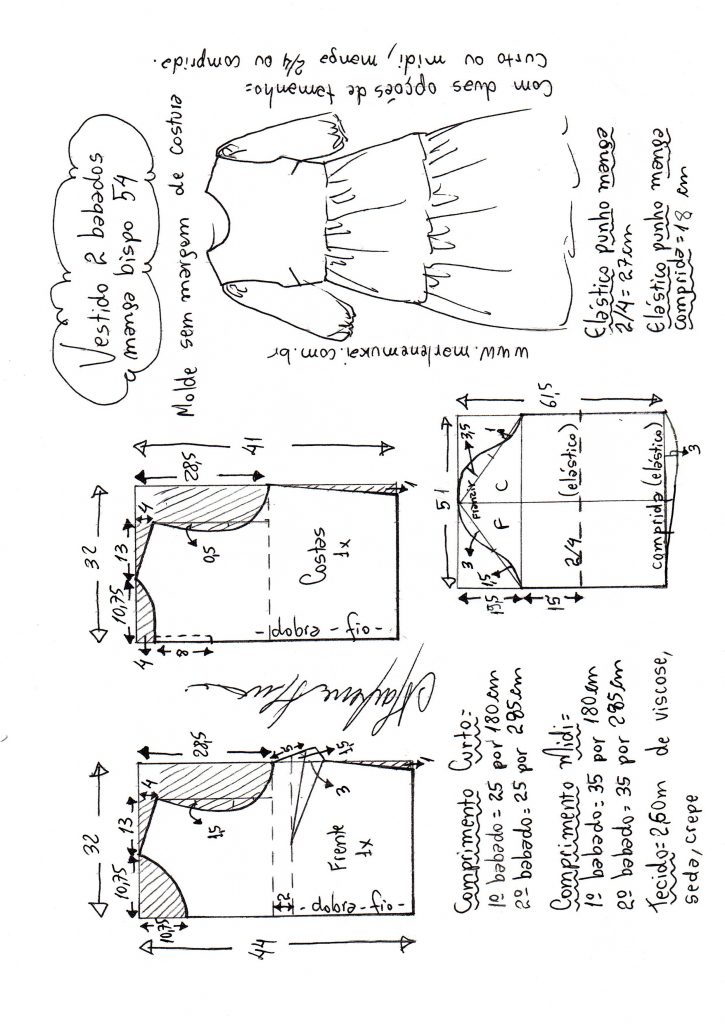 Vestido 2 babados
manga bispo 54
Molde sem margem de costura
Com duas opções de tamanho:
Curto ou midi, manga 2/4 ou comprida.
www.marlenemukai.com.br
Elástico punho manga
2/4 = 27cm
Elástico punho manga
comprida = 18 cm
32
10,75
13
4
28,5
41
4
8
0,5
Costas
1x
-dobra-fio-
1
32
10,75
13
4
28,5
10,75
44
1,5
5
1,5
3
2
Frente
1x
-dobra-fio-
1
51
61,5
3,5
1
franzir
3
1,5
F
C
19,5
15
2/4
(elástico)
comprida (elástico)
3
Comprimento Curto=
1º babado = 25 por 180 cm
2º babado = 25 por 285cm
Comprimento Midi=
1º babado = 35 por 180cm
2º babado = 35 por 285cm
Tecido = 2,60m de viscose,
seda, crepe